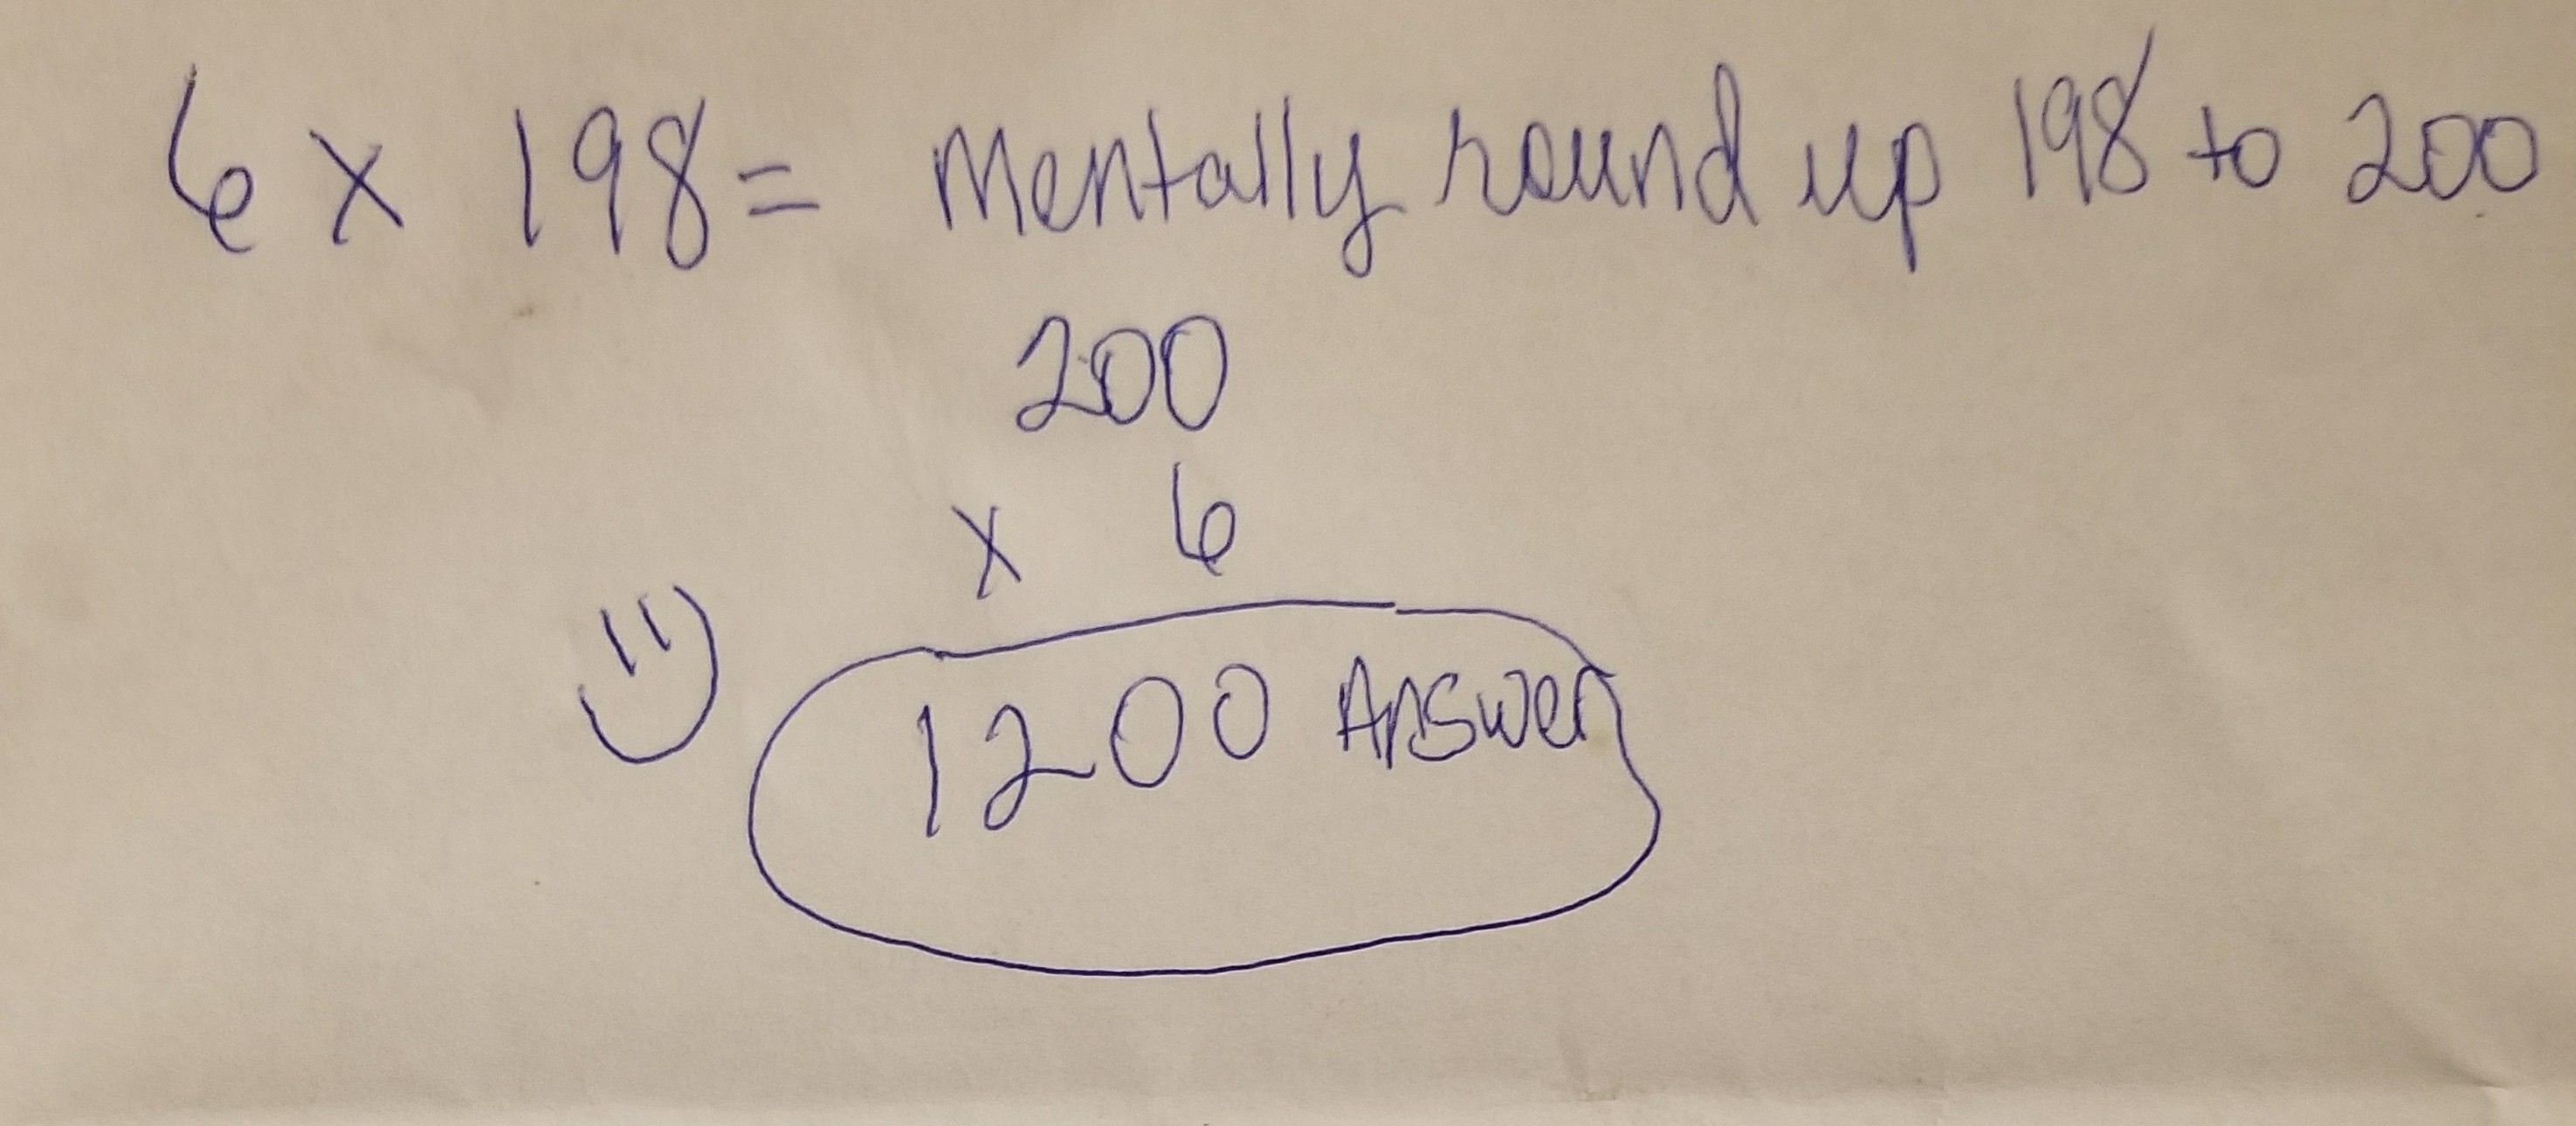 6 x 198 = Mentally round up 198 to 200
200
x 6
1200 Answer